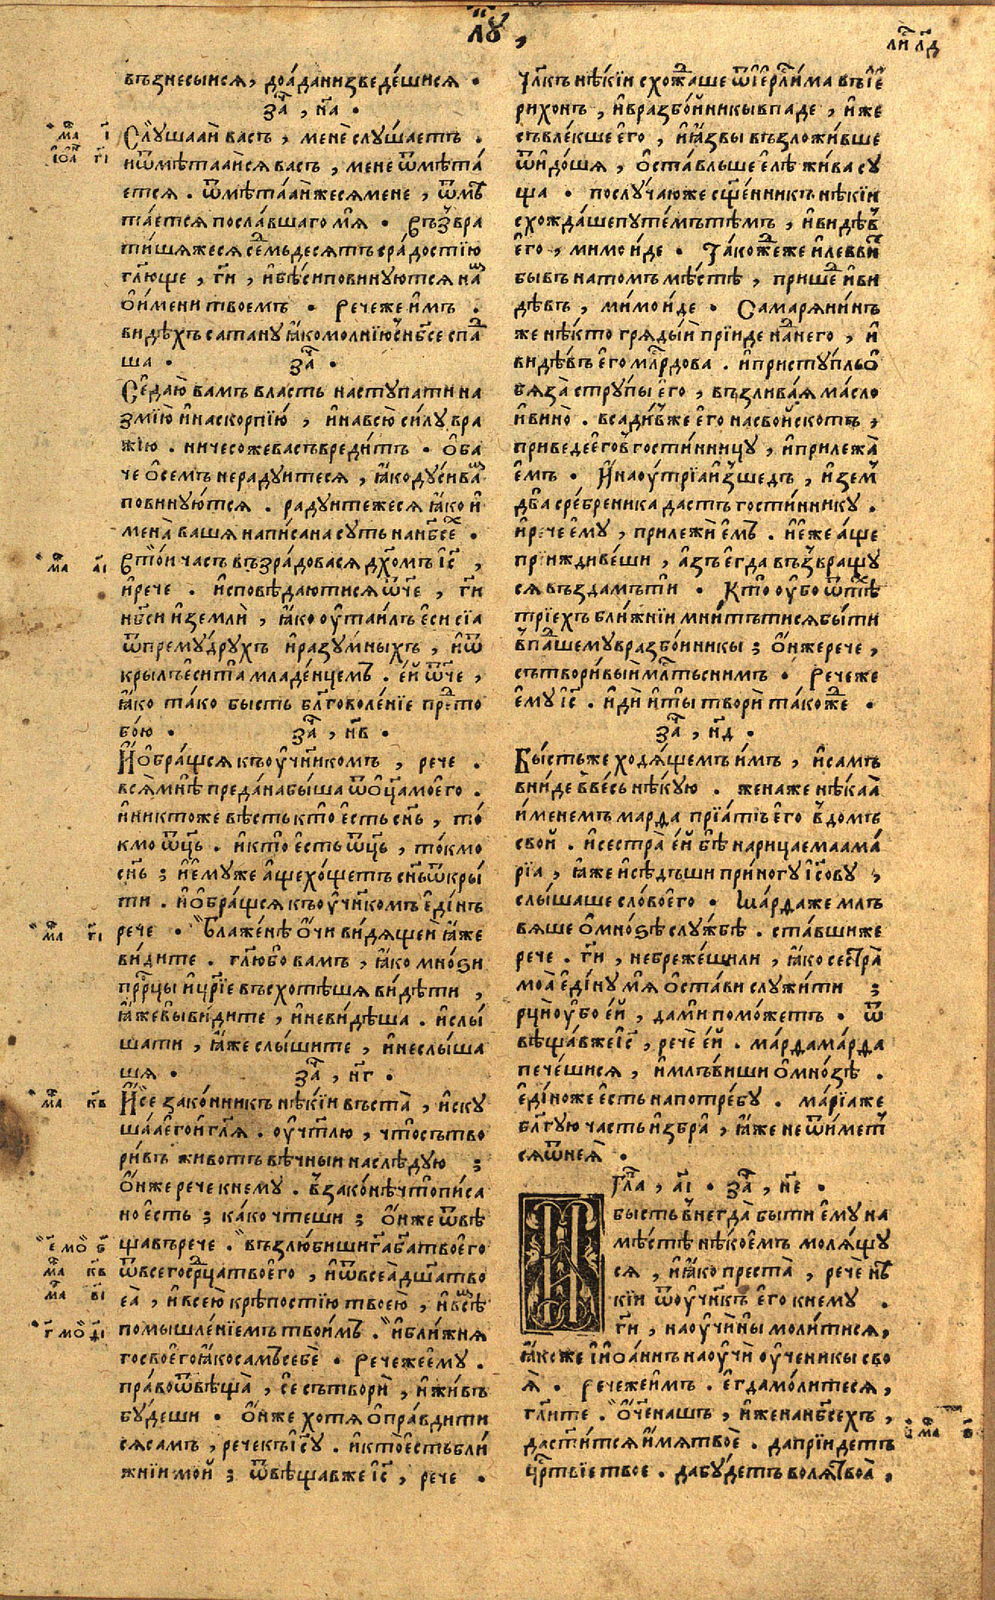 лꙋ,
лиⷭ лд
възнесыисѧ, доаданизведешисѧ.
заⷱ, на.
маⷴ і
іѡⷩ гі
Слꙋшааи васъ, мене слꙋшаетъ.
иѿметааисѧ васъ, мене ѿмета
етсѧ. ѿметааиже сѧ мене, ѿмⷮе
таетсѧ пославшаго мѧ. Възвра
тишѧжесѧ седмьдесѧтъ съ радостїю
гл҃юще, ги҃, и бѣси повинꙋютсѧ наⷨ
ѡ имени твоемъ. Речеже имъ.
видѣхъ сатанꙋ ꙗко молнїю с нб҃се спаⷣ
ша. заⷱ.
Се даю вамъ власть настꙋпати на
змїю и на скорпїю, и на всю силꙋ вра
жїю. ничесоже васъ вредитъ. Оба
че ѡ семъ не радꙋитесѧ, ꙗко дꙋси ваⷨ
повинꙋютсѧ. радꙋитежесѧ ꙗко и
мена ваша написана сꙋть на нб҃сеⷯ.
маⷴ аі
Въ тои часъ възрадовасѧ дх҃омъ іс҃,
и рече. исповѣдаютисѧ ѿче, ги҃
нб҃си и земли, ꙗко ꙋтаилъ еси сїа
ѿ премꙋдрꙋхъ и разꙋмныхъ, и ѿ
крылъ еси та младенцемъ. ей ѿче,
ꙗко тако бысть бл҃говоленїе преⷣ то
бою. заⷱ, нв.
И обращсѧ къ ꙋч҃нкомъ, рече.
всѧ мнѣ предана быша ѿ ѡц҃а моего.
и никтоже вѣсть кто есть сн҃ъ, то
кмо ѿц҃ъ. и кто есть ѿц҃ъ, токмо
сн҃ъ; и емꙋже аще хощетъ сн҃ъ ѿкры
ти. и обращсѧ къ ꙋч҃нкомъ единъ
маⷴ гі
рече. Блаженѣ очи видѧщеи ꙗже
видите. гл҃ю бо вамъ, ꙗко мноѕи
прⷪ҇рцы и цр҃їе въсхотѣшѧ видѣти,
ꙗже вы видите, и не видѣша. и слы
шати, ꙗже слышите, и не слыша
шѧ. заⷱ, нг.
маⷴ кв
И се законникъ нѣкїи въста, искꙋ
шаа его и гл҃ѧ. ꙋчт҃лю, что сътво
ривъ животъ вѣчныи наслѣдꙋю;
Он же рече к немꙋ. в законѣ что писа
но есть; како чтеши; Он же ѿвѣ
е҃ моѵ ѕ
маⷴ кв
маⷴ ві
г҃ моѵ ді
щавъ рече. възлюбиши г҃а б҃а твоего
ѿ всего срⷣца твоего, и ѿ всеа дш҃а тво
еа, и всею крѣпостїю твоею, и всеⷨ
помышленїемъ твоимъ. и ближнѧ
го своего ꙗко самъ себе. Рече же емꙋ.
право ѿвѣща, се сътвори, и живъ
бꙋдеши. Он же хотѧ оправдити
сѧ самъ, рече къ іс҃ꙋ. и кто есть бли
жнїи мой; ѿвѣщавже іс҃, рече.
Чл҃къ нѣкїи схожⷣаше ѿ іерⷭ҇лима въ іе
рихонъ, и в разбойникы впаде, иже
съвлекше его, и ꙗзвы възложивше
ѿидошѧ, оставльше елѣ жива сꙋ
ща. послꙋчаюже сщ҃енникъ нѣкїи
схождаше пꙋтемъ тѣмъ, и видѣв
его, мимо иде. Такожⷣе же и леввиⷮ
бывъ на томъ мѣстѣ, пришеⷣ и ви
дѣвъ, мимо иде. Самарѧнинъ
же нѣкто грѧдый прїиде наⷣ него, и
видѣвъ его млⷭ҇рдова. и пристꙋпль о
бѧза стрꙋпы его, възливаѧ масло
и вино. всадивже его на свой скотъ,
приведе его в гостинницꙋ, и прилежа
емъ. И на ꙋтрїа изшедъ, иземⷧ
два сребреника дастъ гостинникꙋ.
и рече емꙋ, прилежи емъ. и еже аще
приждивеши, азъ егда възвращꙋ
сѧ въздамъ ти. Кто ꙋбо ѿ тѣⷯ
трїехъ ближнїи мнитъ ти сѧ быти
впаⷣшемꙋ в разбойникы; Он же рече,
сътворивый млⷭ҇ть с нимъ. Рече же
емꙋ іс҃. иди и ты твори такожⷣе.
заⷱ, нд.
Бысть же ходѧщемъ имъ, и самъ
вниде в весь нѣкꙋю. жена же нѣкаа
именемъ марѳа прїатъ его в домъ
свой. и сестра ей бѣ нарицаема ма
рїа, ꙗже и сѣдъши при ногꙋ іс҃овꙋ,
слышаше слово его. Марѳа же мль
вѧше ѡ мноѕѣ слꙋжбѣ. ставши же
рече. ги҃, не брежешили, ꙗко сестра
моа единꙋ мѧ остави слꙋжити;
рци ꙋбо ей, да ми поможетъ. ѿ
вѣщавже іс҃, рече ей. марѳа марѳа
печешисѧ, и млъвиши ѡ мнозѣ.
едино же есть на потребꙋ. марїа же
бл҃гꙋю часть избра, ꙗже не ѿиметⷭ
сѧ ѿ неѧ.
Глаⷡ, аі. заⷱ, не.
И бысть внегда быти емꙋ на
мѣстѣ нѣкоемъ молѧщꙋ
сѧ, и ꙗко преста, рече нѣ
кїи ѿ ꙋч҃нкъ его к немꙋ.
ги҃, наꙋчи ны молитисѧ,
ꙗкоже і іоаннъ наꙋчи ꙋченикы сво
ѧ. Рече же имъ. егда молитесѧ,
гл҃ите. Оч҃е нашъ, иже на нб҃сехъ,
маⷴ ѕ
да ст҃итсѧ имѧ твое. да прїидетъ
црⷭ҇твїе твое. да бꙋдетъ волѧ твоа,